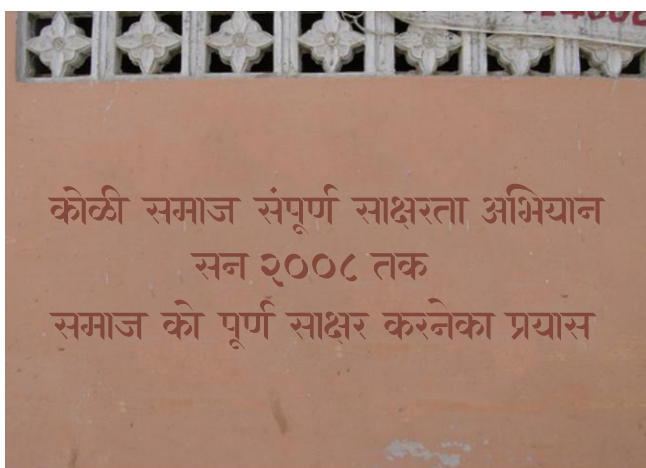 कोळी समाज संपूर्ण साक्षरता अभियान
सन २००८ तक
समाज को पूर्ण साक्षर करनेका प्रयास